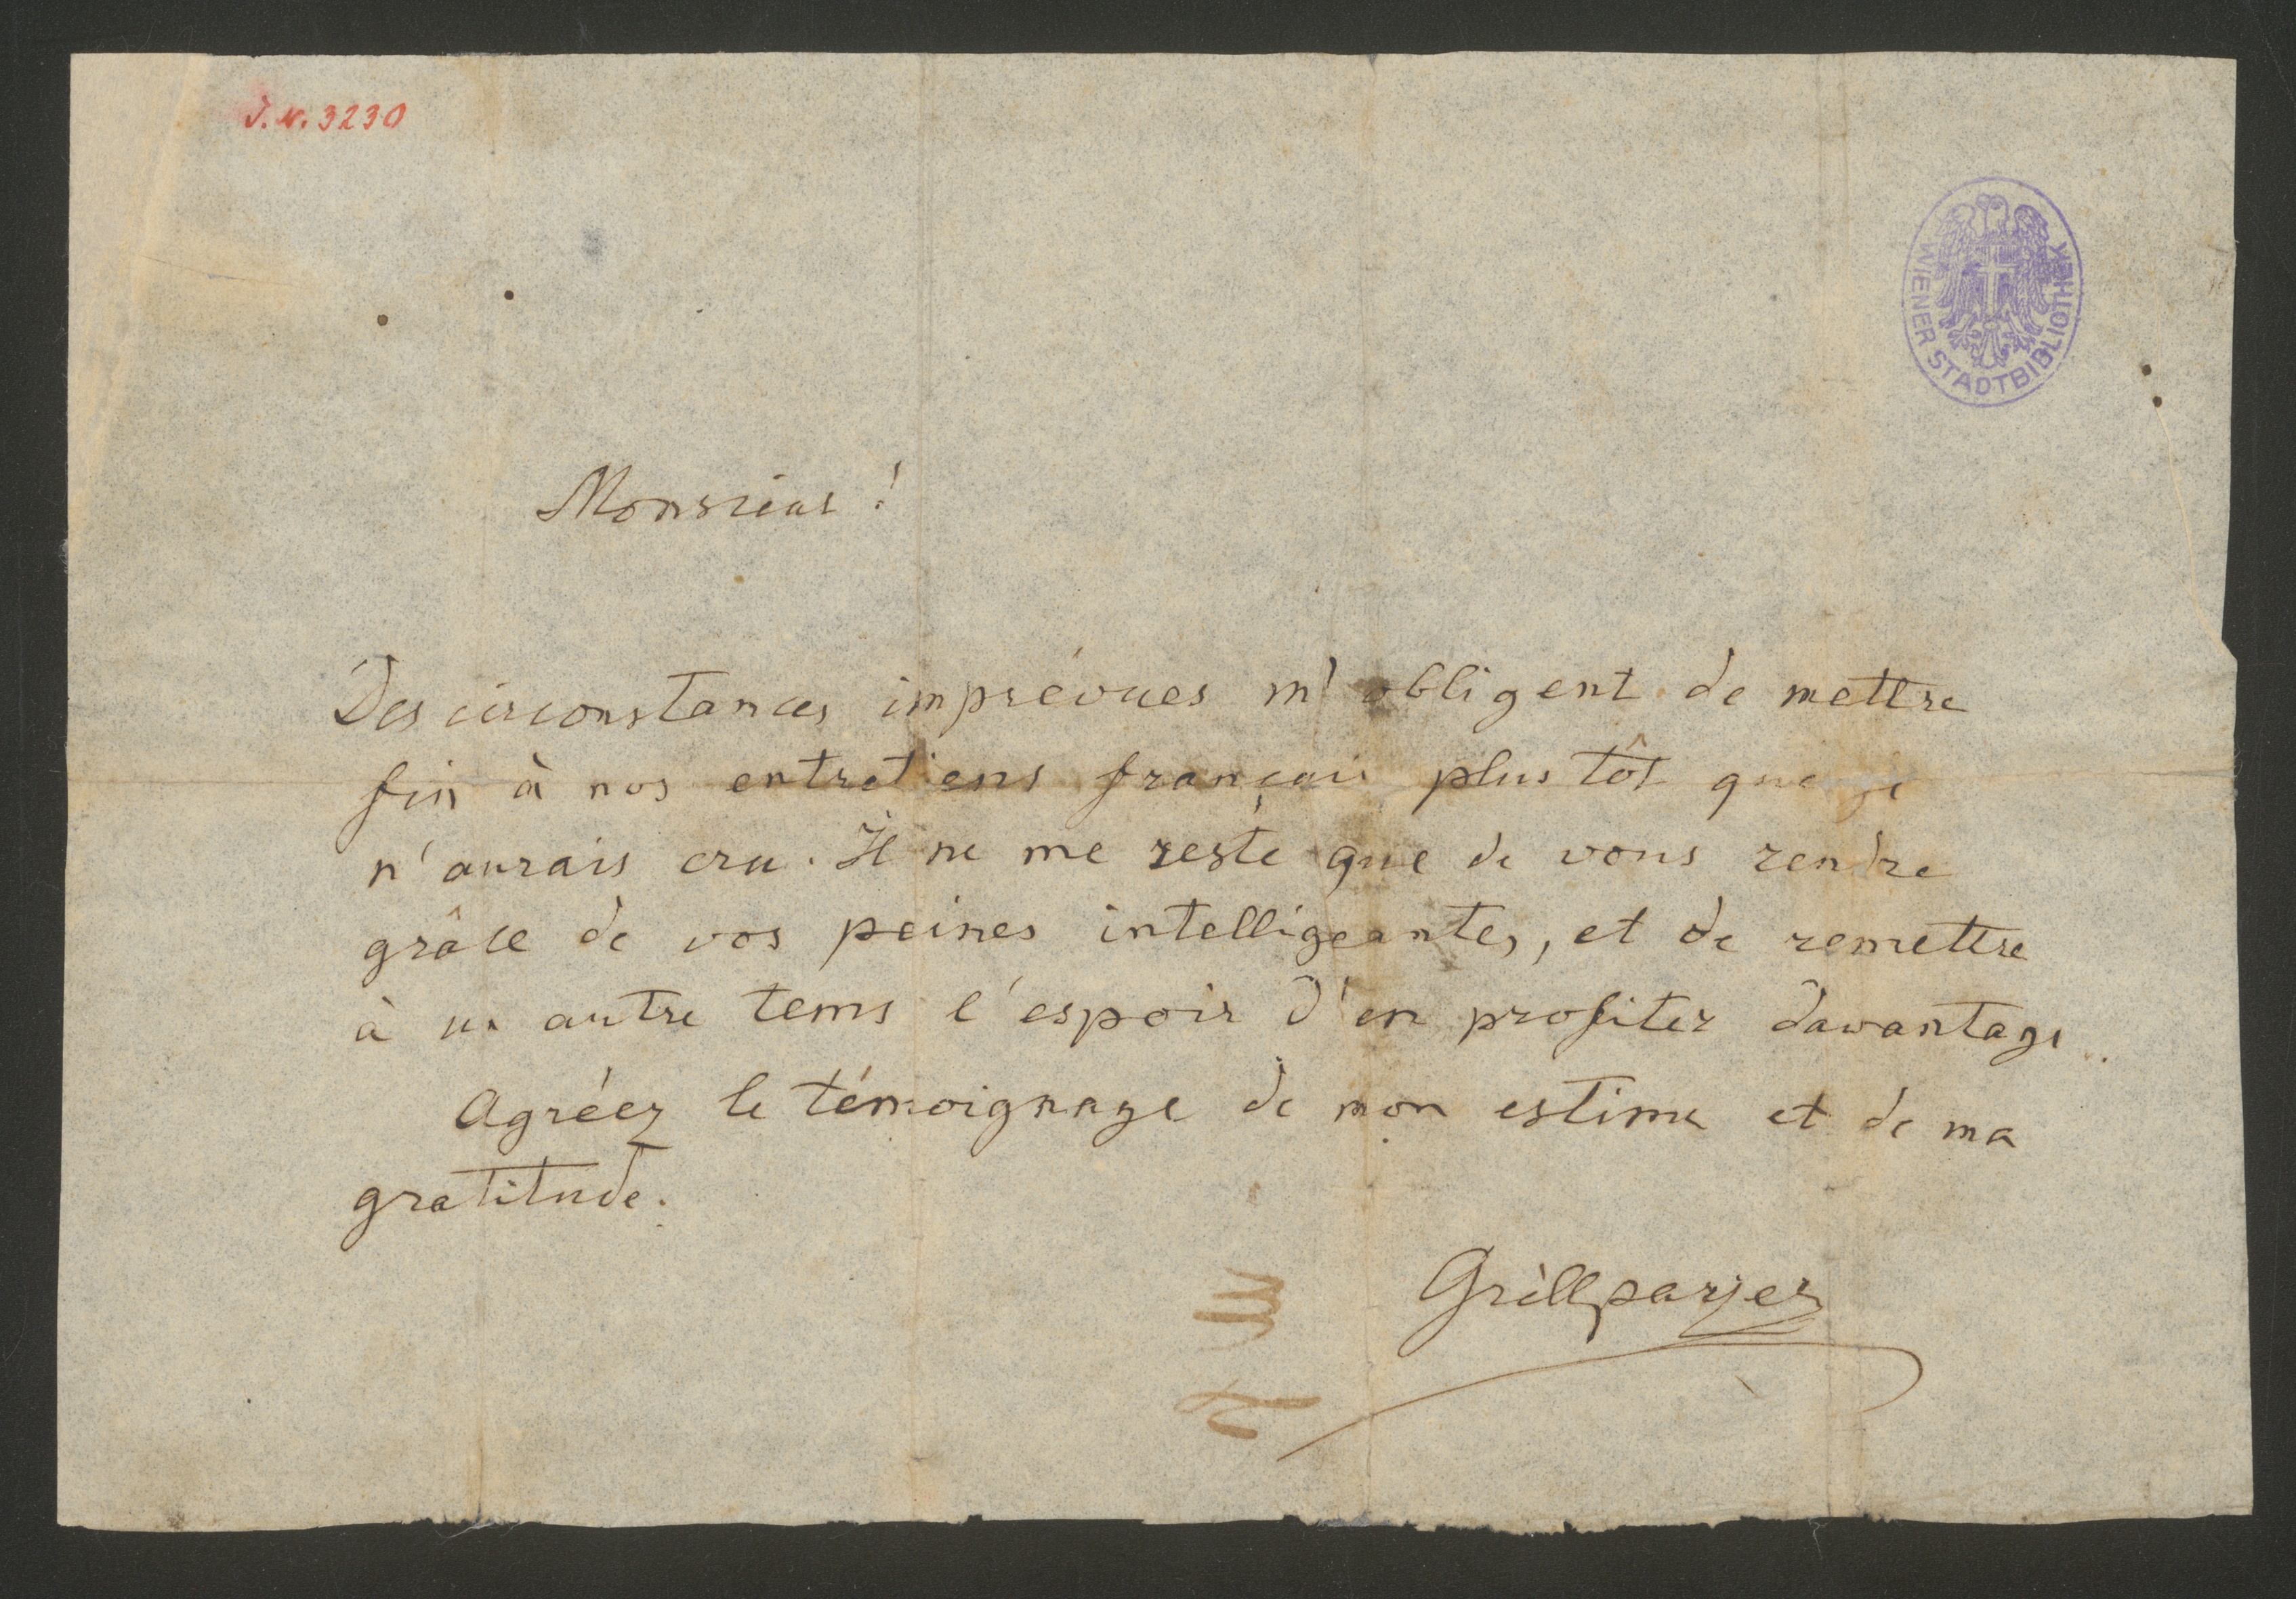 J. N. 3230
WIENER STADTBIBLIOTHEK
Monsieur!
Des circonstances imprévues m'obligent de mettre
fin à nos entretiens français plus tôt que je
n'aurais cru. Il ne me reste que de vous rendre
grâce de vos peines intelligeantes, et de remettre
à un autre tems l'espoir d'en profiter davantage.
Agréez le témoignage de mon estime et de ma
gratitude.
Grillparzer